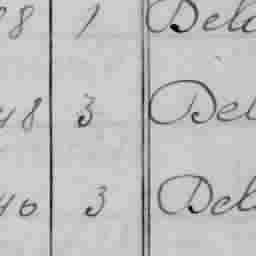 8 1 Dela
48 3 Del
40 3 Dela